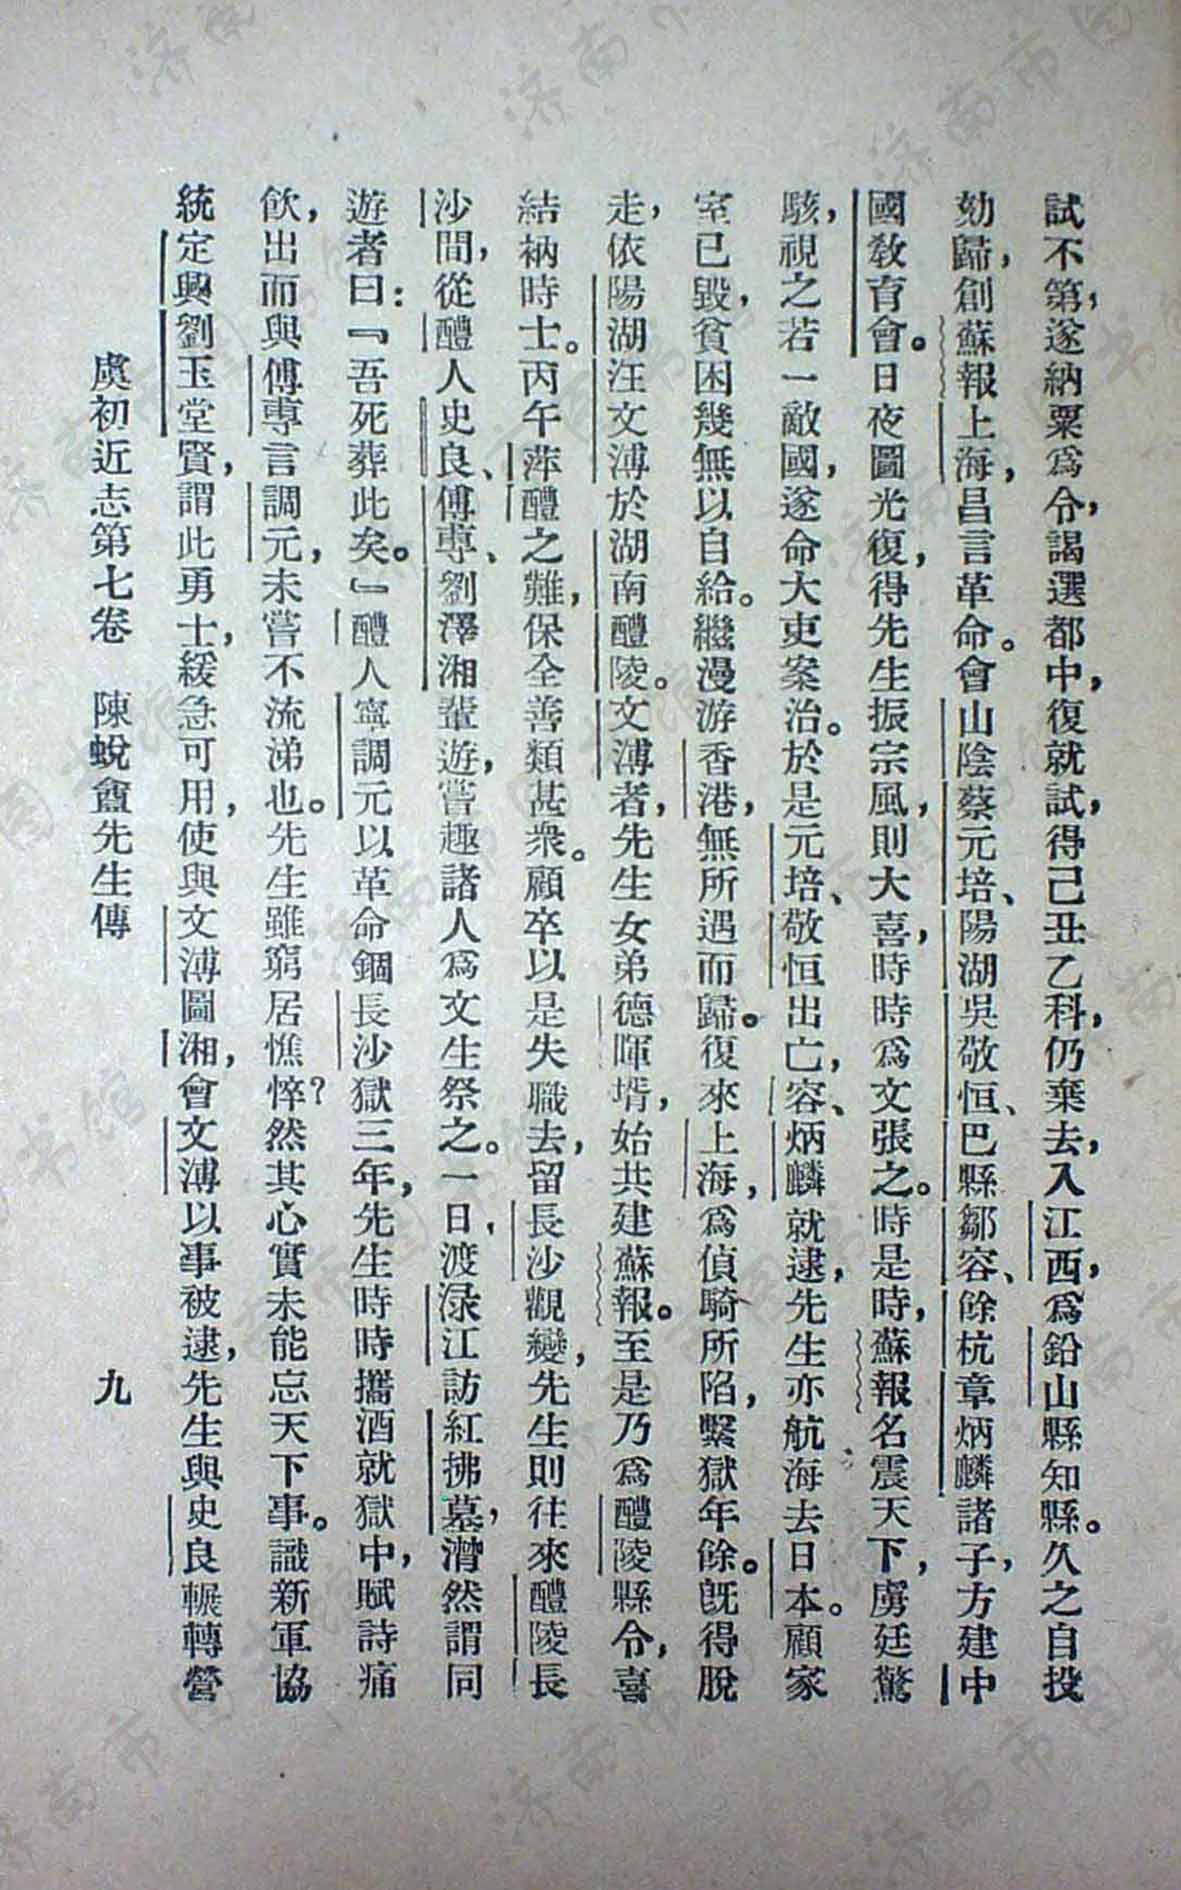 試不第，遂納粟爲令，謁選都中，復就試，得己丑乙科，仍棄去，入江西，爲鉛山縣知縣。久之自投
劾歸，創蘇報上海，昌言革命。會山陰蔡元培、陽湖吳敬恒、巴縣鄒容、餘杭章炳麟諸子，方建中
國敎育會。日夜圖光復，得先生振宗風，則大喜，時時爲文張之。時是時，蘇報名震天下，虜廷驚
駭，視之若一敵國，遂命大吏案治。於是元培、敬恒出亡，容、炳麟就逮，先生亦航海去日本。顧家
室已毀，貧困幾無以自給。繼漫游香港，無所遇而歸。復來上海，爲偵騎所陷，繫獄年餘。旣得脫
走，依陽湖汪文溥於湖南醴陵。文溥者，先生女弟德暉壻，始共建蘇報。至是乃爲醴陵縣令，喜
結衲時士。丙午萍醴之難，保全善類甚衆。顧卒以是失職去，留長沙觀變，先生則往來醴陵長
沙間，從醴人史良、傅專、劉澤湘輩遊，嘗趣諸人爲文生祭之。一日，渡淥江訪紅拂墓，潸然謂同
遊者曰：『吾死葬此矣。』醴人寧調元以革命錮長沙獄三年，先生時時攜酒就獄中，賦詩痛
飲，出而與傅專言調元，未嘗不流涕也。先生雖窮居憔悴？然其心實未能忘天下事。識新軍協
統定興劉玉堂賢，謂此勇士，緩急可用，使與文溥圖湘，會文溥以事被逮，先生與史良輾轉營
虞初近志第七卷　陳蛻盦先生傳　九